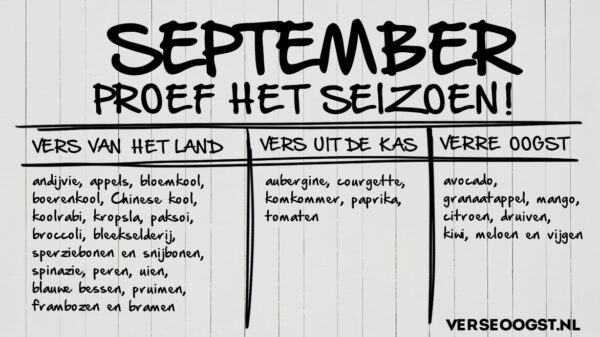 SEPTEMBER
PROEF HET SEIZOEN!
VERS VAN HET LAND
andijvie, appels, bloemkool,
boerenkool, Chinese kool,
koolrabi, kropsla, paksoi,
broccoli, bleekselderij,
sperziebonen en snijbonen,
spinazie, peren, uien,
blauwe bessen, pruimen,
frambozen en bramen
VERS UIT DE KAS
aubergine, courgette,
komkommer, paprika,
tomaten
VERRE OOGST
avocado,
granaatappel, mango,
citroen, druiven,
kiwi, meloen en vijgen
VERSEOOGST.NL